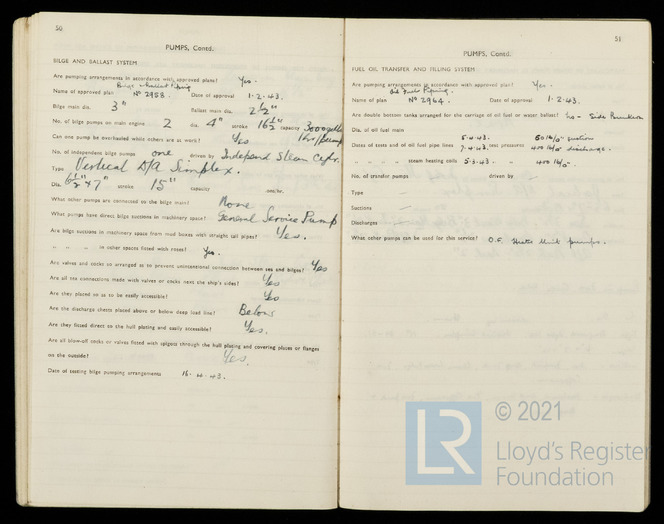 50
PUMPS, Contd.
BILGE AND BALLAST SYSTEM
Are pumping arrangements in accordance with approved plans? Yes.
Bilge & Ballast Piping
Name of approved plan No 2958. Date of approval 1.2.43.
Bilge main dia. 3" Ballast main dia. 2 1/2"
No. of bilge pumps on main engine 2 dia. 4" stroke 16 1/2" capacity 3000 galls
Can one pump be overhauled while others are at work? Yes 1 hr/pump
No. of independent bilge pumps one driven by Independ Steam Cylr.
Type Vertical D/A Simplex.
Dia. 6 1/2" x 7" stroke 15" capacity
What other pumps are connected to the bilge main? None
What pumps have direct bilge suctions in machinery space? General Service Pump
Are bilge suctions in machinery space from mud boxes with straight tail pipes? Yes.
" " " in other spaces fitted with roses? Yes.
Are valves and cocks so arranged as to prevent unintentional connection between sea and bilges? Yes
Are all sea connections made with valves or cocks next the ship's sides? Yes
Are they placed so as to be easily accessible? Yes
Are the discharge chests placed above or below deep load line? Below
Are they fitted direct to the hull plating and easily accessible? Yes.
Are all blow-off cocks or valves fitted with spigots through the hull plating and covering plates or flanges
on the outside? Yes.
Date of testing bilge pumping arrangements 43.
51
PUMPS, Contd.
FUEL OIL TRANSFER AND FILLING SYSTEM
Are pumping arrangements in accordance with approved plan? Yes.
Oil Fuel Piping.
Name of plan No 2964. Date of approval 1.2.43.
Are double bottom tanks arranged for the carriage of oil fuel or water ballast? No - Side Bunkers
Dia. of oil fuel main
5.4.43. 50 lb/□" suction
Dates of tests of oil fuel pipe lines 7.4.43. test pressures 400 lb/□" discharge.
" " " steam heating coils 5.3.43. " 400 lb/□".
No. of transfer pumps driven by —
Type —
Suctions —
Discharges —
What other pumps can be used for this service? O.F. Unit pumps.
© 2021
LR
Lloyd's Register
Foundation